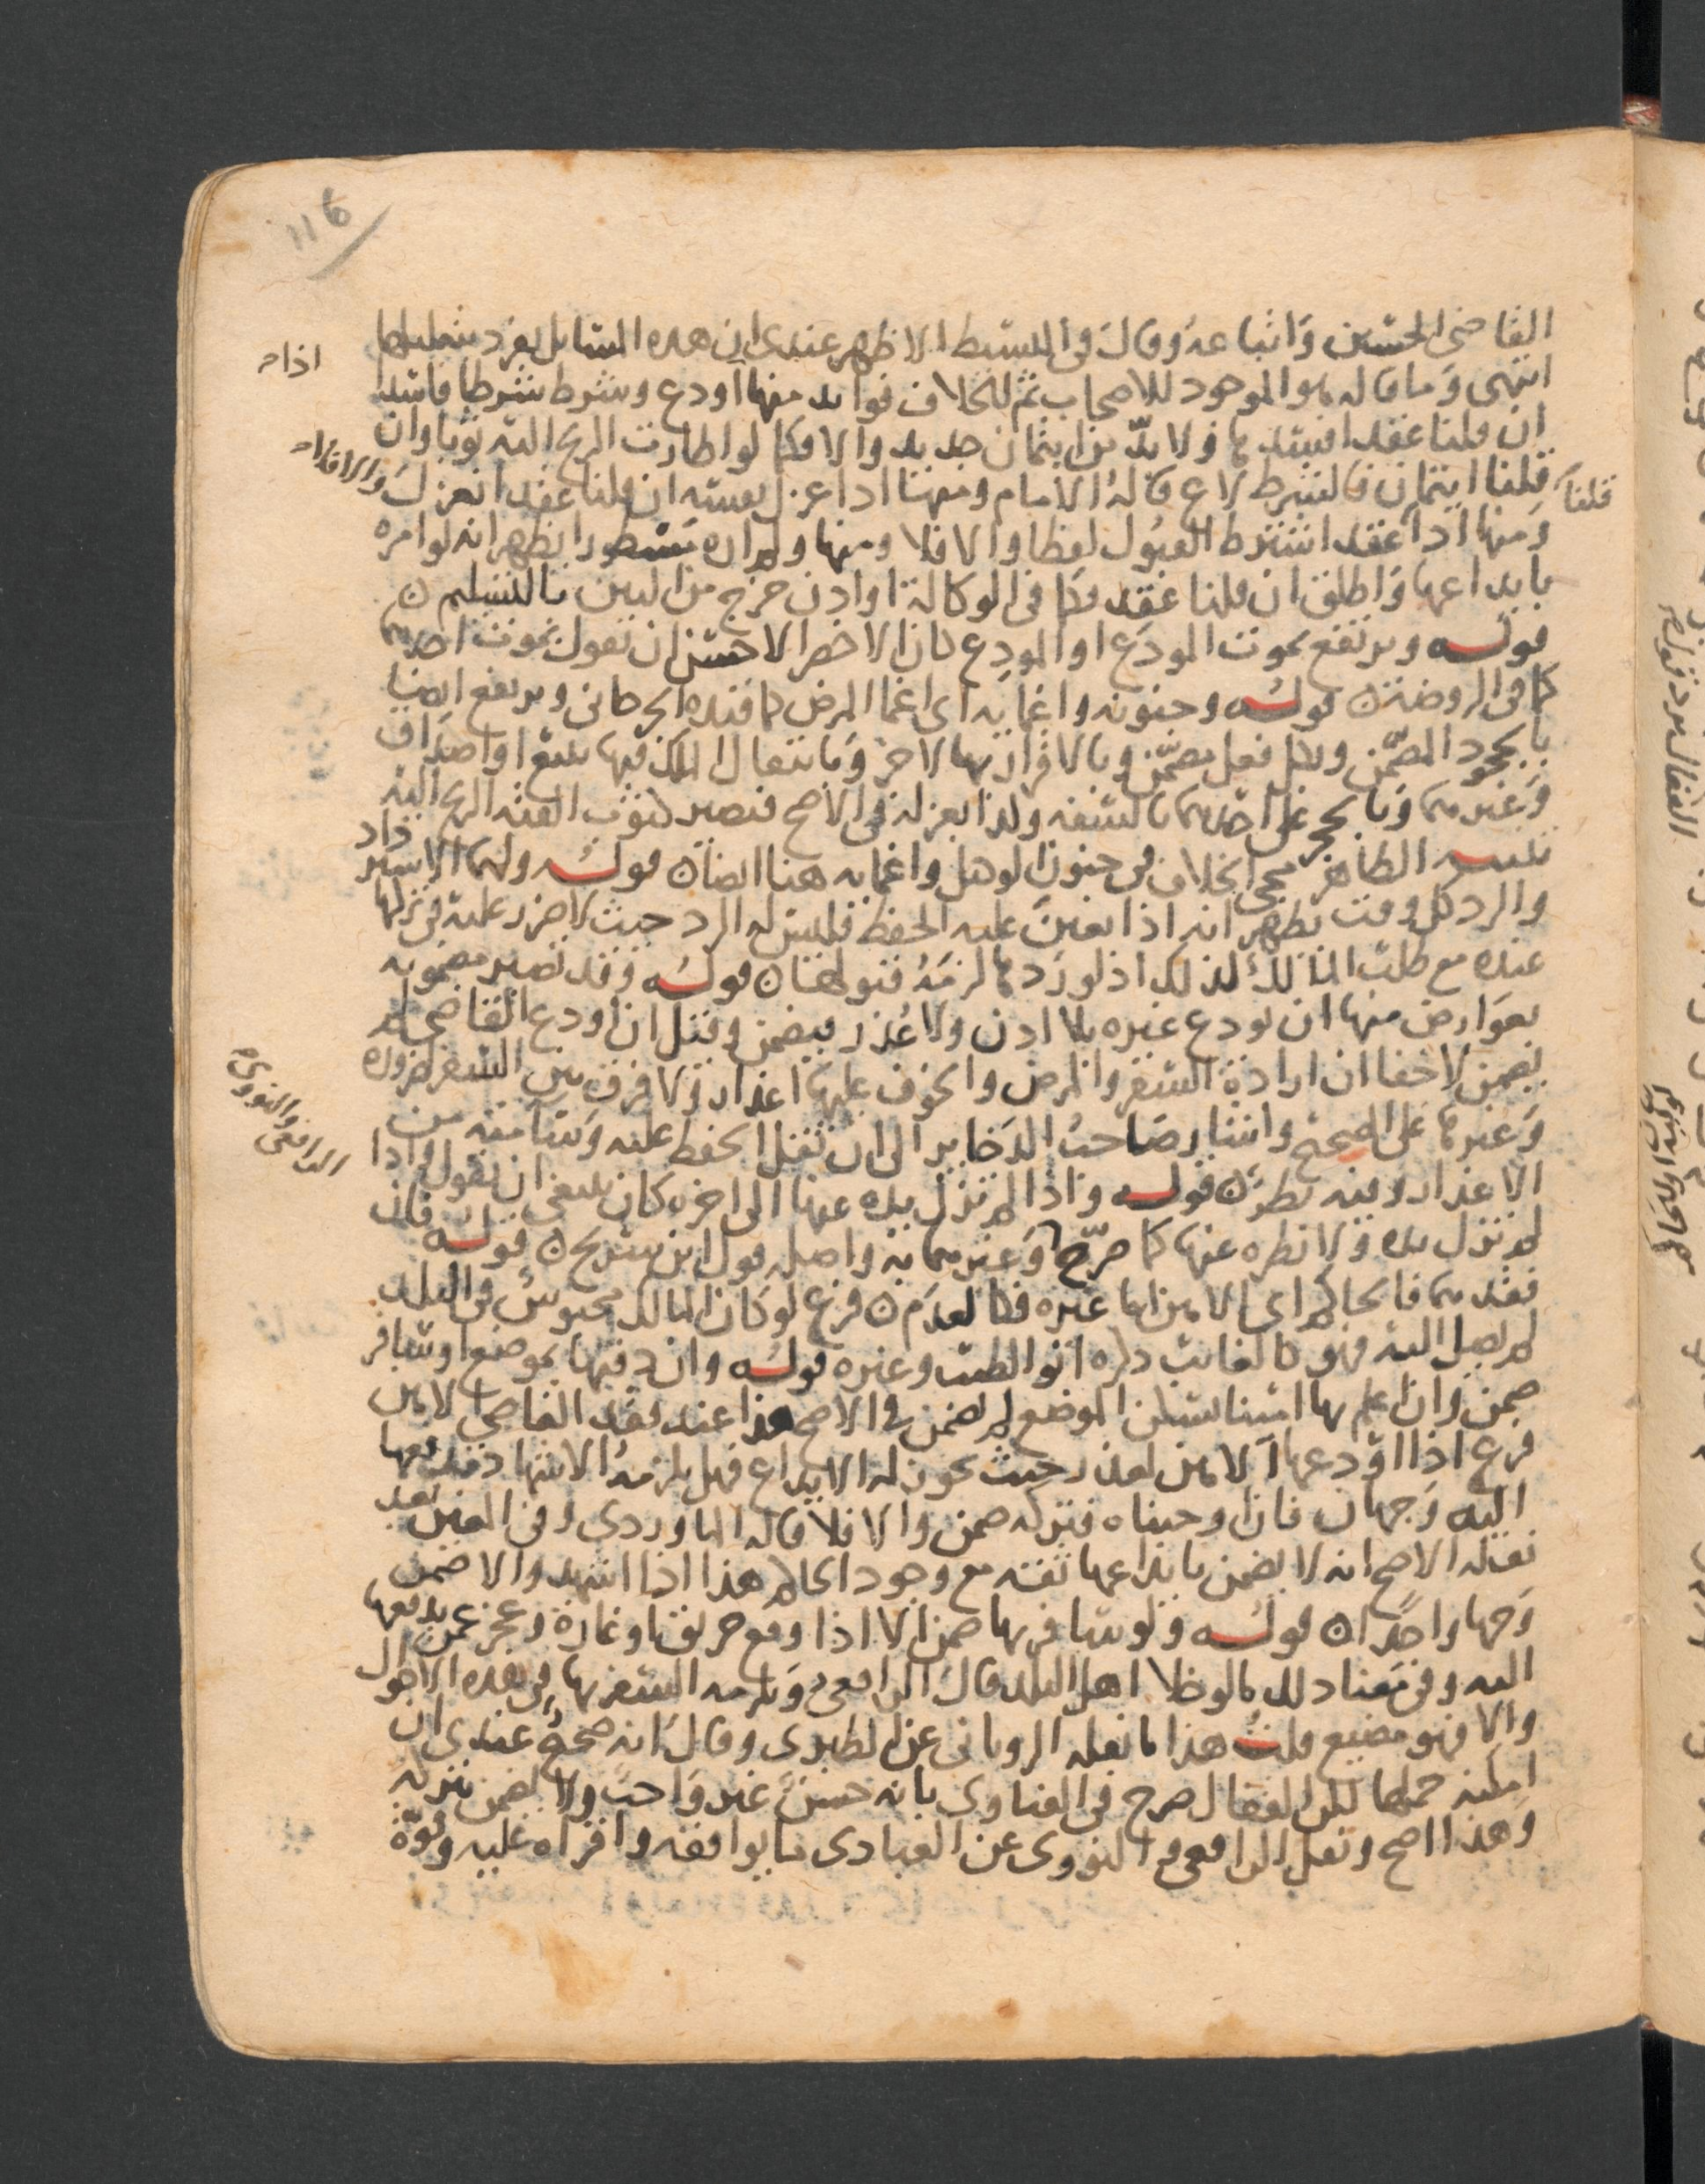 116
القاضي الحسين واتباعه وقال في البسيط الاظهر عندي ان هذه المسايل يعرد بتعليلها
اذا
انتهى وما قاله هو الموجود للاصحاب ثم للخلاف فوايد منها اودع وشرط شرطا فاسدا
ان قلنا عقد افسدها ولا بد من ايتمان جديد والا فكما لو اطارت الريح اليه ثوبا وان
قلنا ايتمان فالشرط لاغ قاله الامام ومنها اذا عزل نفسه ان قلنا عقد انعزل والا فلا
قلنا
ومنها اذا عقد اشترط القبول لفظا والا فلا ومنها ولم اره مسطورا يظهر انه لو امره
بايداعها واطلق ان قلنا عقد فكما في الوكالة او اذن خرج من البين بالتسليم
قوله ويرتفع بموت المودع او المودع كان الاخصر الاحسن ان تقول بموت احدهما
كما في الروضة قوله وجنونه واغمايه اي اغما المرض كما قيده الجرجاني ويرتفع ايضا
بالجحود المضمن وبكل فعل مضمن وبالاقرار بها لاخر وبانتقال الملك فيها ببيع او اصداق
وغيرهما وبالحجر على احدهما بالسفه وكذا بعزله في الاصح فتصير كثوب القته الريح اليه
تنبيه الظاهر مجي الخلاف في جنون الوكيل واغمايه هنا ايضا قوله ولهما الاسترداد
والرد كل وقت يظهر انه اذا تعين عليه الحفظ فليس له الرد حيث لا ضرر عليه في تركها
عنده مع طلب المالك لذلك اذ لو ردها لزمه قبولها قوله وقد تصير مضمونه
بعوارض منها ان يودع غيره بلا اذن ولا عذر فيضمن وقيل ان اودع القاضي لم
يضمن لا خفا ان ارادة السفر والمرض والخوف عليها اعذار ولا فرق بين السفر لضروره
وغيرها على الصحيح واشار صاحب الذخاير الى ان ثقل الحفظ عليه وسآمته من
الرافعي والنووي
الاعذار وفيه نظر قوله واذا لم تزل يده عنها الى اخره كان ينبغي ان يقول واذا
لم تزل يده ولا نظره عنها كما صرح وغيرهما به واصله قول ابن سريج قوله فان
فقدهما فالحاكم اي الامين اما غيره فكالعدم فرع لو كان المالك محبوس في البلد
لم يصل اليه فهو كالغايب ذكره ابو الطيب وغيره قوله وان دفنها بموضع وسافر
ضمن وان اعلم بها امينا يسكن الموضع لم يضمن في الاصح هذا عند فقد القاضي الامين
فرع اذا اودعها الامين لعذر حيث يجوز له الايداع فهل يلزمه الاشهاد فيدفعها
اليه وجهان فان اوجبناه فتركه ضمن والا فلا قاله الماوردي وفي المعين بعد
نقله الاصح انه لا يضمن بايداعها ثقة مع وجود الحاكم هذا اذا اشهد والا ضمن
وجها واحدا قوله ولو سافر بها ضمن الا اذا وقع حريق او غارة وعجز عمن يدفعها
اليه وفي معناه ذلك ما لو جلا اهل البلد قال الرافعي ويلزمه السفر بها في هذه الاحوال
والا فهو مضيع قلت هذا ما نقله الروياني عن الطبري وقال انه صحيح عندي ان
امكنه حملها لكن القفال صرح في الفتاوى بانه حسن غير واجب ولا يضمن بتركه
وهذا اصح ونقل الرافعي والنووي عن العبادي ما يوافقه واقراه عليه وقوة